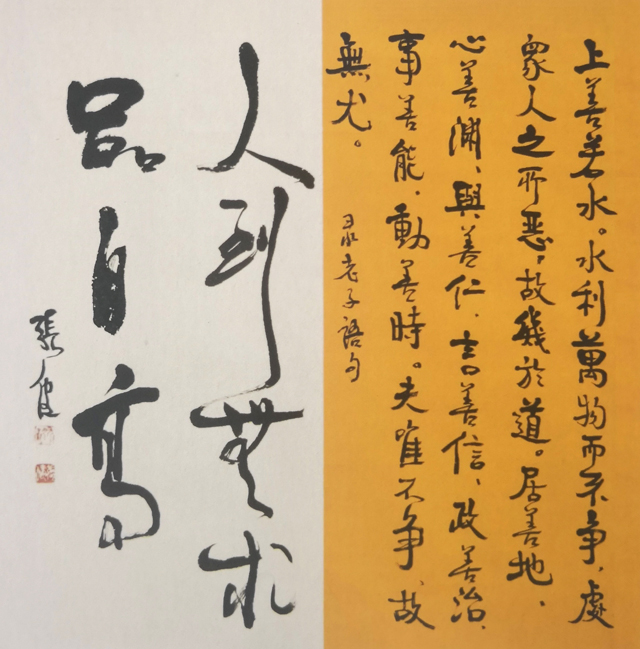 上善若水。水利萬物而不争,處
衆人之所恶,故幾於道。居善地、
心善渊、與善仁、言善信、政善治、
事善能、動善時。夫唯不争、故
無尤。
录老子語句
人到無求
品自高